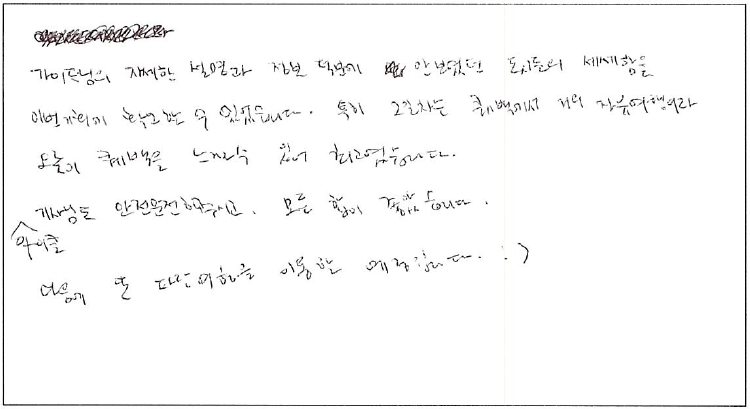 가이드님의 자세한 설명과 정보 덕분에 안 보였던 도시들의 세세함을
수 있었습니다. 특히 2일차는 퀘벡에서 거의 자유여행이라
오늘이 퀘벡을 느끼수 있어 최고였습니다.
기사님도 안전운전해주시고. 모든 합이 좋았습니다.
다음에 또 다른여행을 이용할 예정입니다. :)